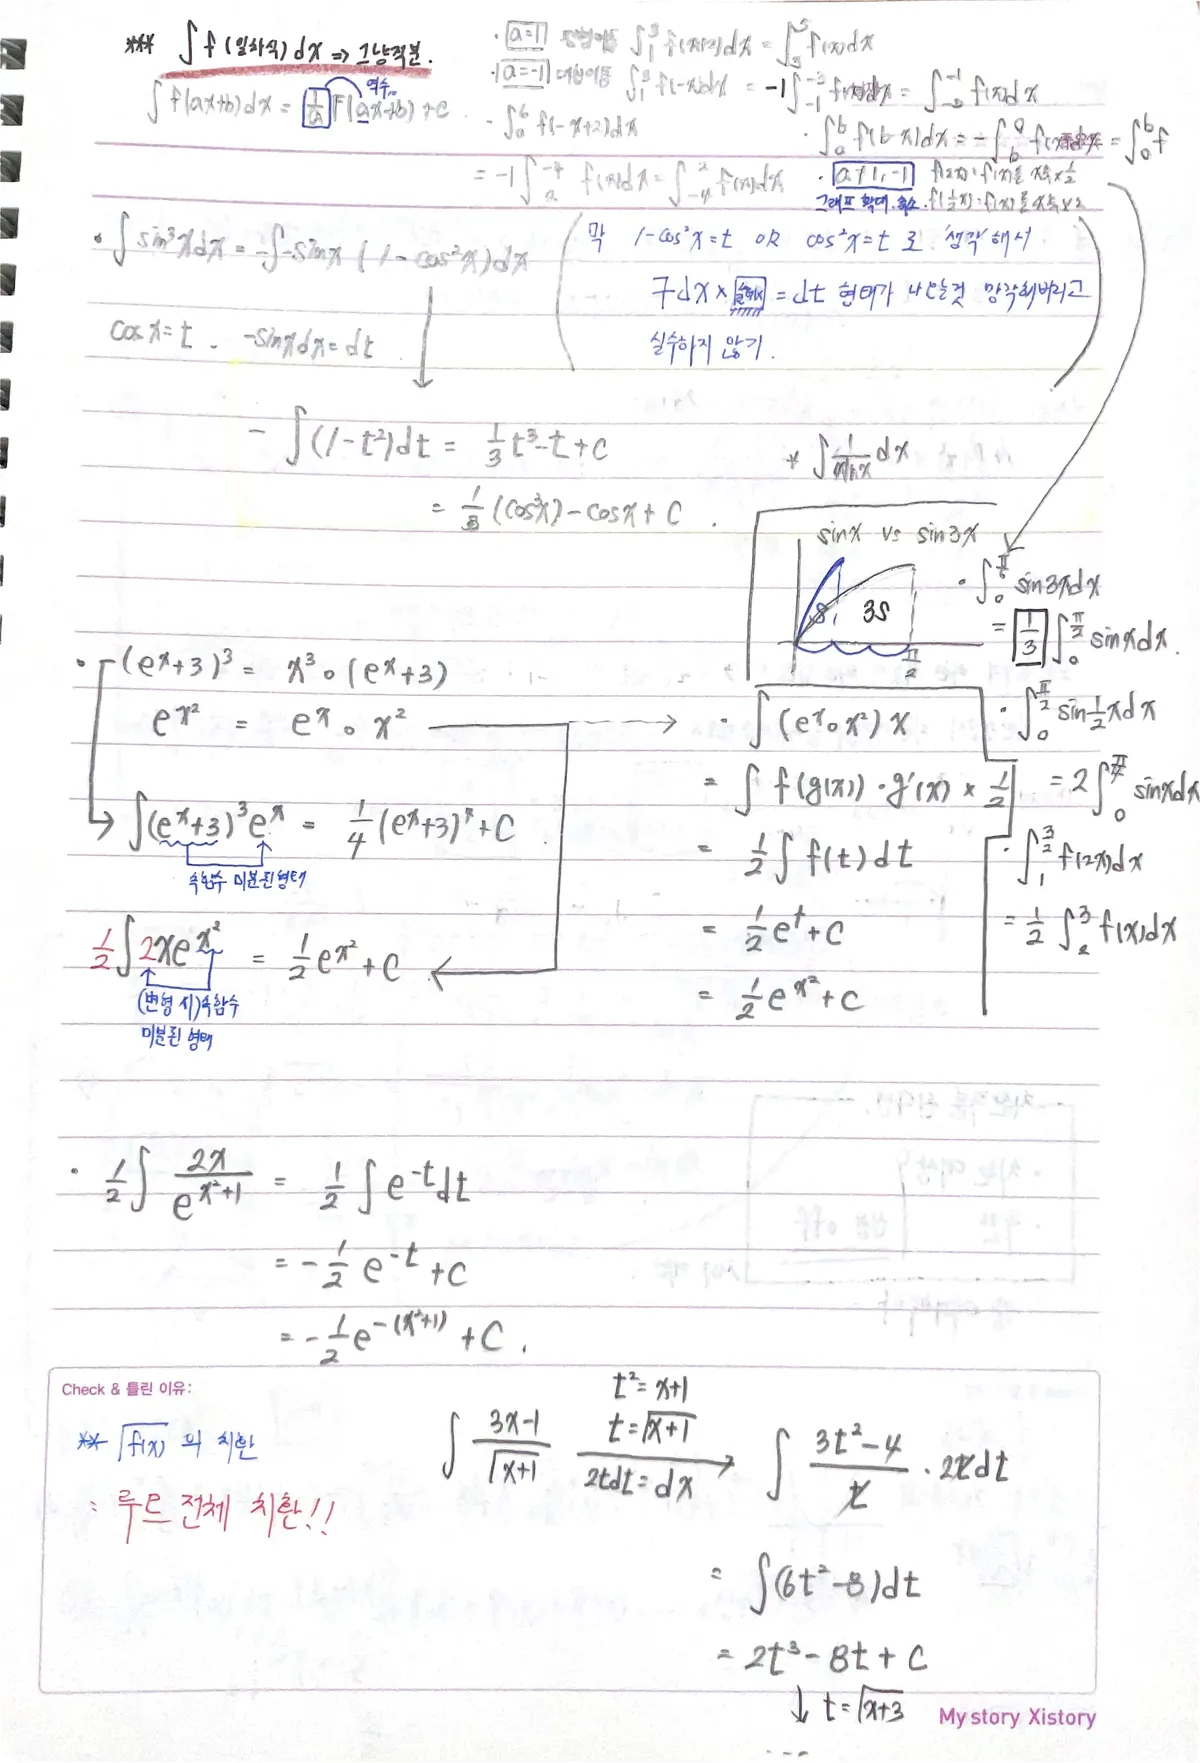 *** ∫f(일차식)dx ⇒ 그냥적분.
∫f(ax+b)dx = 1/a F(ax+b)+C
역수
· a=1 평행이동 ∫₁³ f(x+2)dx = ∫₃⁵ f(x)dx
· a=-1 대칭이동 ∫₁³ f(-x)dx = -1∫₋₁⁻³ f(x)dx = ∫₋₃⁻¹ f(x)dx
- ∫₀⁶ f(-x+2)dx
= -1∫₂⁻⁴ f(x)dx = ∫₋₄² f(x)dx
· ∫ₐᵇ f(b-x)dx = -∫ f(x)dx = ∫₀ᵇ f
· a≠1, -1 f(2x) : f(x)를 x축 × 1/2
그래프 확대, 축소. f(½x) : f(x)를 x축 × 2
· ∫sin³xdx = -∫-sinx(1-cos²x)dx
cosx = t. -sinxdx = dt
막 1-cos²x=t OR cos²x=t 로 '생각'해서
dx× = dt 형태가 나오는것 망각해버리고
실수하지 않기.
- ∫(1-t²)dt = 1/3 t³-t+C
= 1/3 (cos³x)-cosx+C.
* ∫ 1/ dx
sinx vs sin3x
S 3S
π/2
· ∫₀^(π/6) sin3xdx
= 1/3 ∫₀^(π/2) sinxdx.
· ∫₀^(π/2) sin½xdx
= 2∫₀^(π/4) sinxdx
· ∫₁^(3/2) f(2x)dx
= 1/2 ∫₂³ f(x)dx
· (eˣ+3)³ = x³∘(eˣ+3)
e^(x²) = eˣ∘x²
→ ∫(eˣ+3)³eˣ = 1/4 (eˣ+3)⁴+C
속함수 미분된형태
1/2 ∫2xe^(x²) = 1/2 e^(x²)+C
(변형 시)속함수
미분된 형태
· ∫(eˣ∘x²)x
= ∫f(g(x))·g'(x)×1/2
= 1/2 ∫f(t)dt
= 1/2 eᵗ+C
= 1/2 e^(x²)+C
· 1/2 ∫ 2x/e^(x²+1) = 1/2 ∫e^(-t)dt
= -1/2 e^(-t)+C
= -1/2 e^(-(x²+1))+C.
Check & 틀린 이유:
** √f(x) 의 치환
: 루트 전체 치환!!
t²=x+1
∫ (3x-1)/√(x+1) t=√(x+1) → ∫ (3t²-4)/t · 2tdt
2tdt=dx
= ∫(6t²-8)dt
= 2t³-8t+C
↓ t=√(x+3)
...
My story Xistory